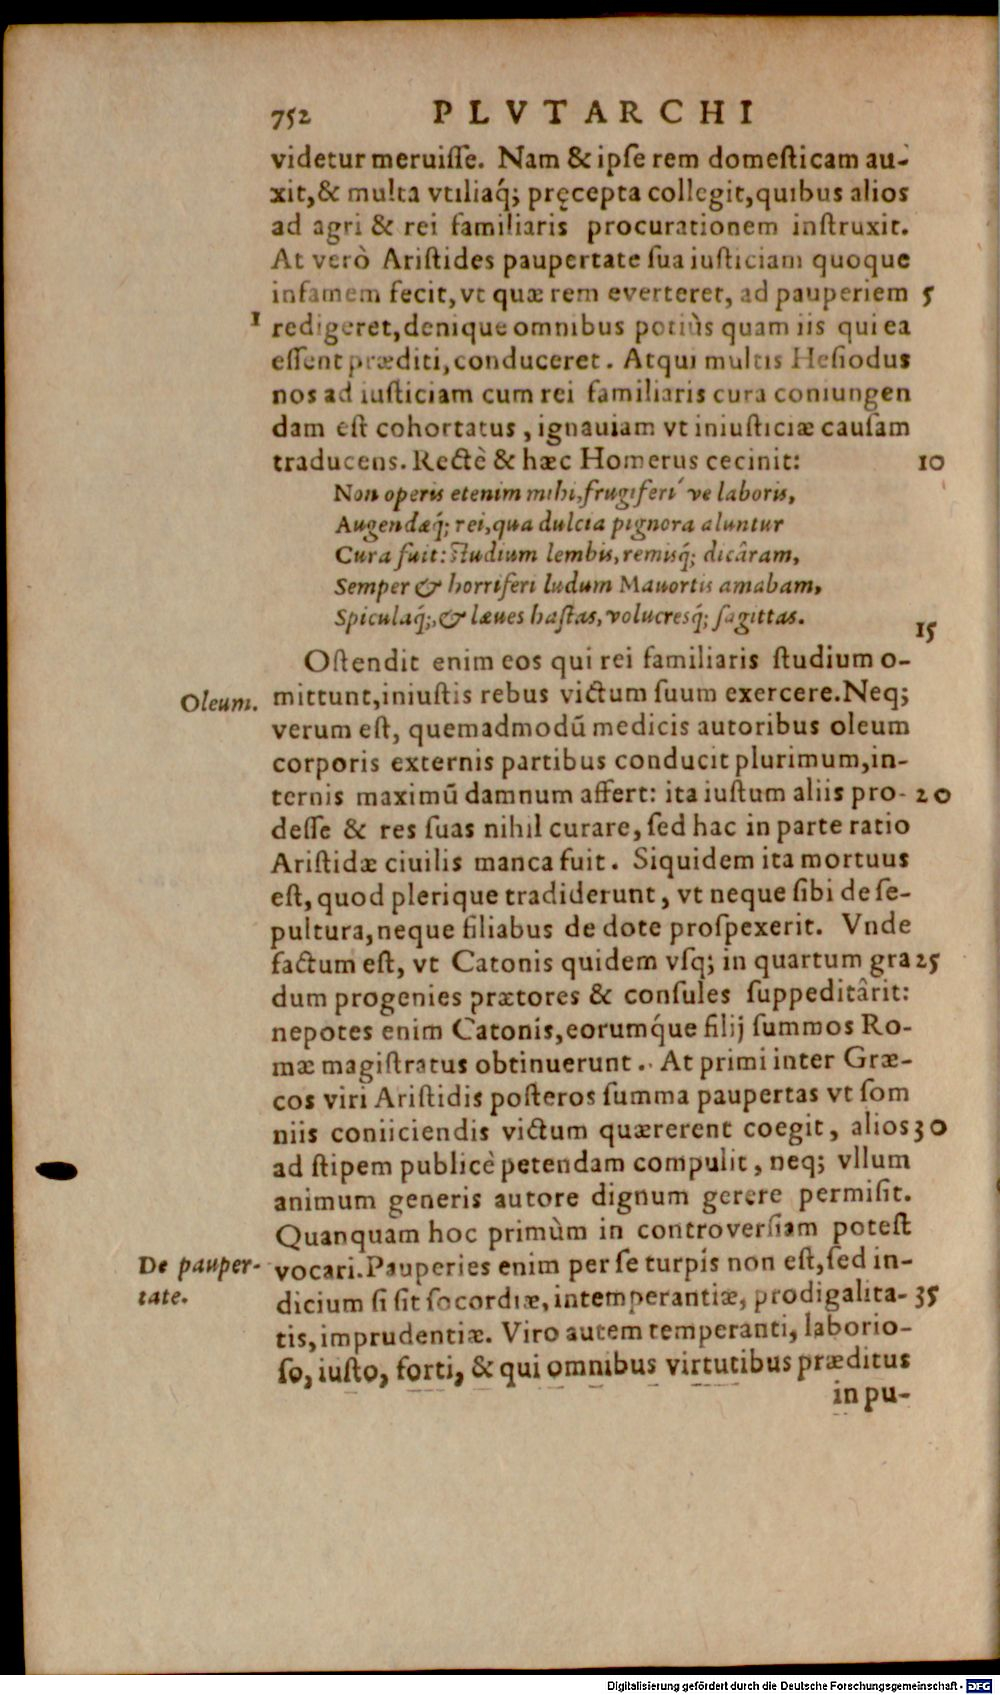 752 PLVTARCHI
videtur meruiſſe. Nam & ipſe rem domeſticam au-
xit, & multa vtiliaq́; pręcepta collegit, quibus alios
ad agri & rei familiaris procurationem inſtruxit.
At verò Ariſtides paupertate ſua iuſticiam quoque
infamem fecit, vt quæ rem everteret, ad pauperiem 5
1 redigeret, denique omnibus potiùs quam iis qui ea
eſſent præditi, conduceret. Atqui multis Heſiodus
nos ad iuſticiam cum rei familiaris cura coniungen
dam eſt cohortatus, ignauiam vt iniuſticiæ cauſam
traducens. Rectè & hæc Homerus cecinit: 10
Non operis etenim mihi, frugiferi´ ve laboris,
Augendæq́; rei, qua dulcia pignora aluntur
Cura fuit: ſtudium lembis, remisq́; dicâram,
Semper & horriferi ludum Mauortis amabam,
Spiculaq́;, & læues haſtas, volucresq́; ſagittas.
15
Oſtendit enim eos qui rei familiaris ſtudium o-
Oleum. mittunt, iniuſtis rebus victum ſuum exercere. Neq;
verum eſt, quemadmodū medicis autoribus oleum
corporis externis partibus conducit plurimum, in-
ternis maximū damnum affert: ita iuſtum aliis pro- 20
deſſe & res ſuas nihil curare, ſed hac in parte ratio
Ariſtidæ ciuilis manca fuit. Siquidem ita mortuus
eſt, quod plerique tradiderunt, vt neque ſibi de ſe-
pultura, neque filiabus de dote proſpexerit. Vnde
factum eſt, vt Catonis quidem vſq; in quartum gra 25
dum progenies prætores & conſules ſuppeditârit:
nepotes enim Catonis, eorumq́ue filij ſummos Ro-
mæ magiſtratus obtinuerunt. At primi inter Græ-
cos viri Ariſtidis poſteros ſumma paupertas vt ſom
niis coniiciendis victum quærerent coegit, alios 30
ad ſtipem publicè petendam compulit, neq; vllum
animum generis autore dignum gerere permiſit.
Quanquam hoc primùm in controverſiam poteſt
De pauper- vocari. Pauperies enim per ſe turpis non eſt, ſed in-
tate. dicium ſi ſit ſocordiæ, intemperantiæ, prodigalita- 35
tis, imprudentiæ. Viro autem temperanti, laborio-
ſo, iuſto, forti, & qui omnibus virtutibus præditus
in pu-
Digitalisierung gefördert durch die Deutsche Forschungsgemeinschaft - DFG